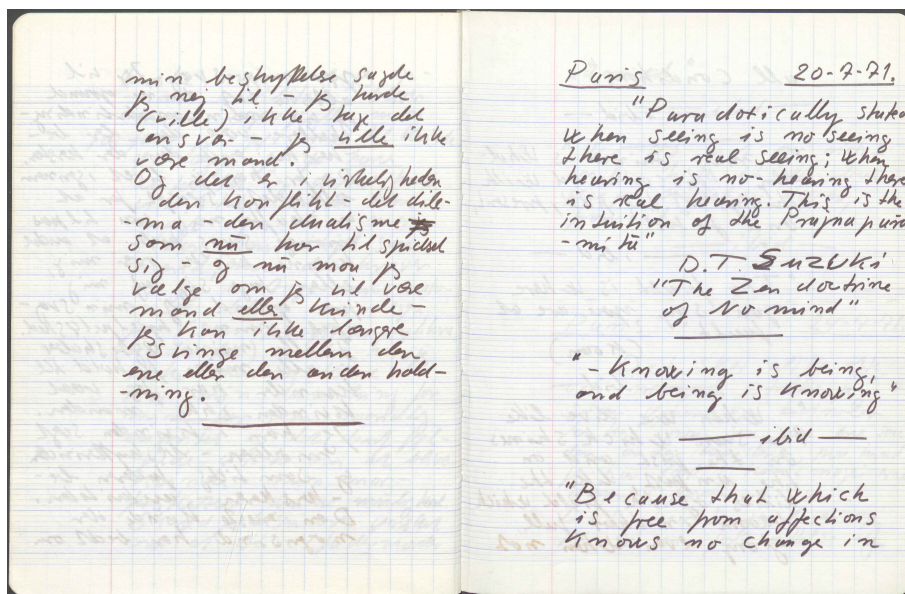 min beskyttelse sagde
jeg nej til - jeg turde
(ville) ikke tage det
ansvar - jeg ville ikke
være mand.
Og det er i virkeligheden
den konflikt - det dile-
-ma - den dualisme
som nu har tilspidset
sig - og nu maa jeg
vælge om jeg vil være
mand eller kvinde -
jeg kan ikke længere
svinge mellem den
ene eller den anden hold-
-ning.
Paris 20-7-71.
"Paradoxically stated
when seeing is no seeing
there is real seeing; when
hearing is no-hearing there
is real hearing. This is the
intuition of the Prajnapara
-mita"
D.T. Suzuki
"The Zen doctrine
of No mind"
"- Knowing is being,
and being is Knowing"
ibid
"Because that which
is free from affections
Knows no change in